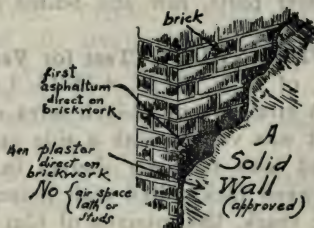 brick
first
asphaltum
direct on
brickwork
then plaster
direct on
brickwork
No { air space
lath or
studs
A
Solid
Wall
(approved)